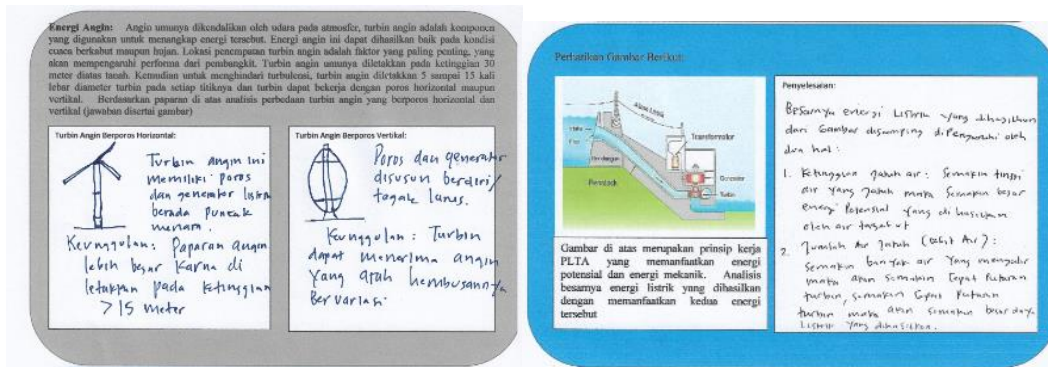 Energi Angin: Angin umunya dikendalikan oleh udara pada atmosfer, turbin angin adalah komponen
yang digunakan untuk menangkap energi tersebut. Energi angin ini dapat dihasilkan baik pada kondisi
cuaca berkabut maupun hujan. Lokasi penempatan turbin angin adalah faktor yang paling penting, yang
akan mempengaruhi performa dari pembangkit. Turbin angin umunya diletakkan pada ketinggian 30
meter diatas tanah. Kemudian untuk menghindari turbulensi, turbin angin diletakkan 5 sampai 15 kali
lebar diameter turbin pada setiap titiknya dan turbin dapat bekerja dengan poros horizontal maupun
vertikal. Berdasarkan paparan di atas analisis perbedaan turbin angin yang berporos horizontal dan
vertikal (jawaban disertai gambar)
Turbin Angin Berporos Horizontal:
Turbin angin ini
memiliki poros
dan generator listrik
berada puncak
menara.
Keunggulan: Paparan angin
lebih besar karna di
letakkan pada ketinggian
>15 meter
Turbin Angin Berporos Vertikal:
Poros dan generator
disusun berdiri/
tegak lurus.
Keunggulan: Turbin
dapat menerima angin
yang arah hembusannya
Bervariasi
Perhatikan Gambar Berikut:
Transformator
Generator
Turbin
Penstock
Gambar di atas merupakan prinsip kerja
PLTA yang memanfaatkan energi
potensial dan energi mekanik. Analisis
besarnya energi listrik yang dihasilkan
dengan memanfaatkan kedua energi
tersebut
Penyelesaian:
Besarnya energi listrik yang dihasilkan
dari Gambar disamping dipengaruhi oleh
dua hal:
1. Ketinggian jatuh air: Semakin tinggi
air yang jatuh maka semakin besar
energi Potensial yang dihasilkan
oleh air tersebut
2. Jumlah Air Jatuh (debit Air):
Semakin banyak air yang mengalir
maka akan semakin Cepat Putaran
turbin, semakin Cepat Putaran
turbin maka akan semakin besar daya
Listrik yang dihasilkan.